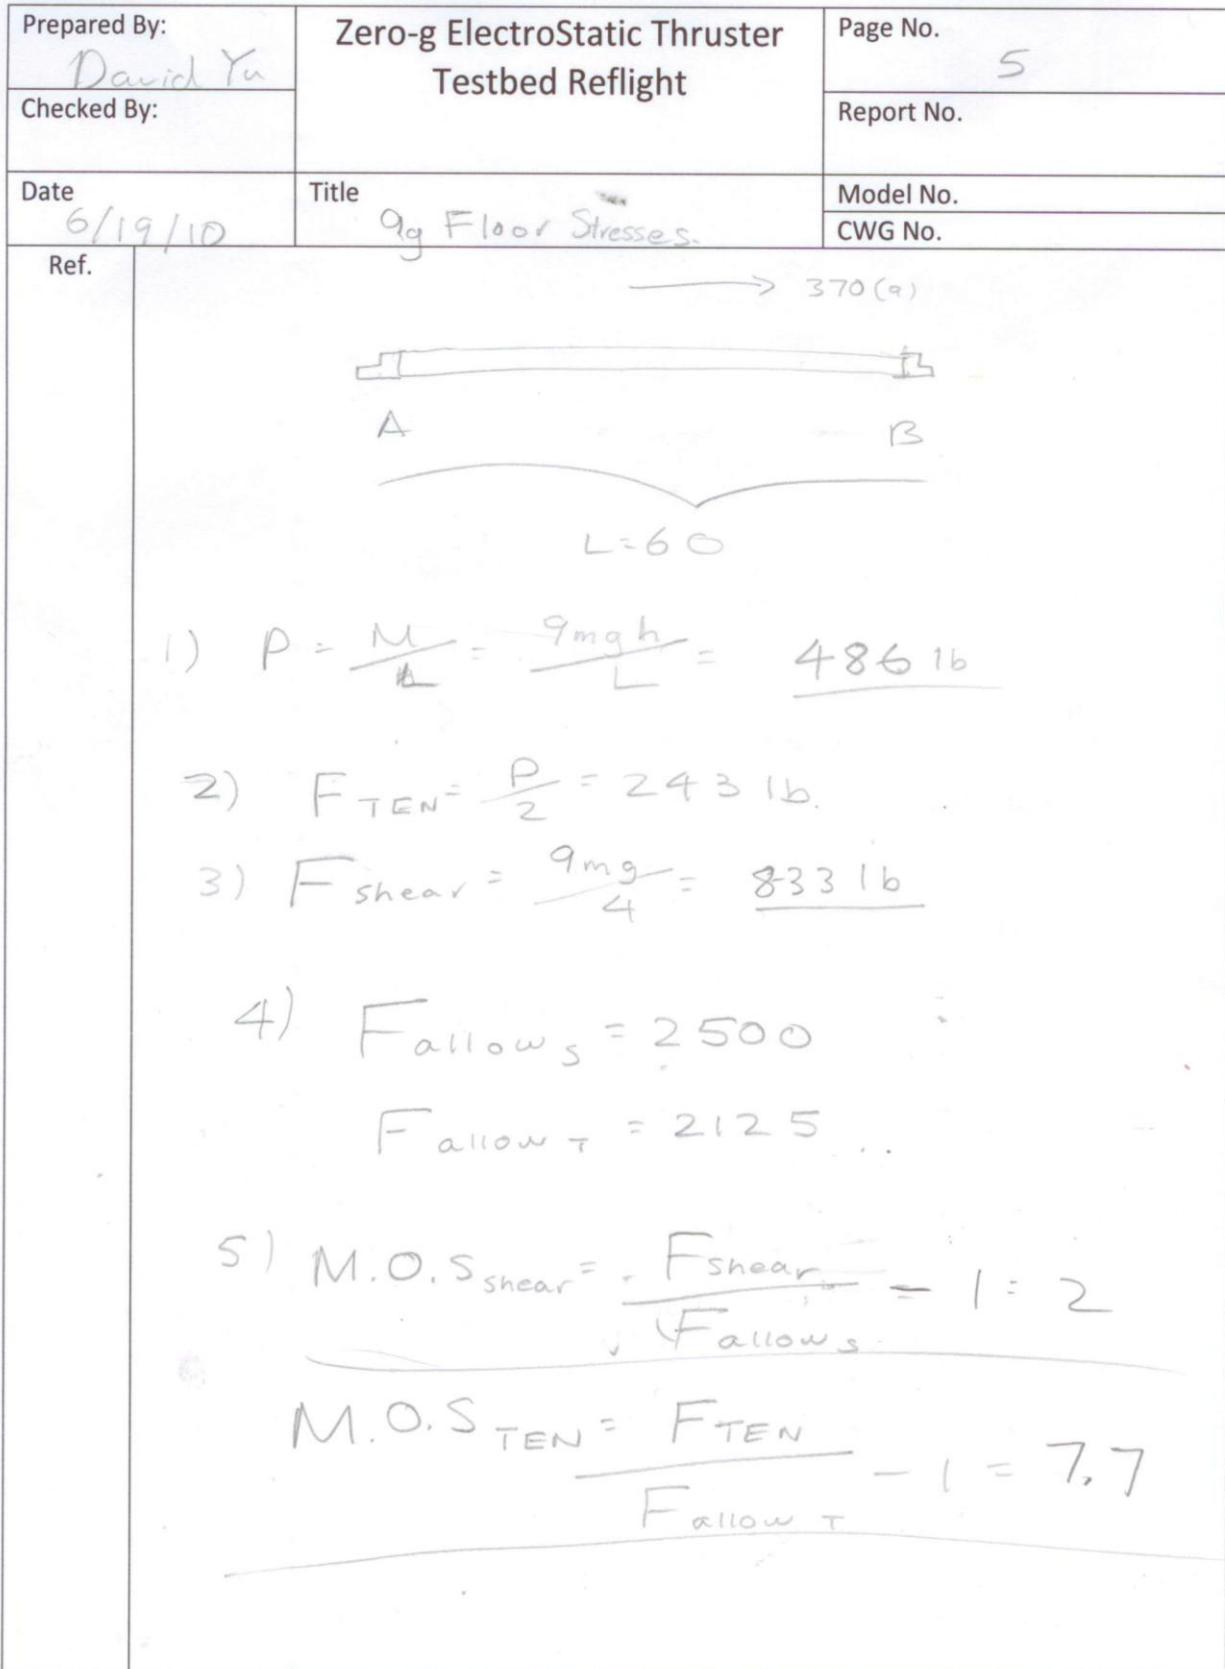 Prepared By:
David Yu
Zero-g ElectroStatic Thruster
Testbed Reflight
Page No.
5
Checked By:
Report No.
Date
6/19/10
Title
9g Floor Stresses.
Model No.
CWG No.
Ref.
→ 370(9)
A B
L=60
1) P = M/L = 9mgh/L = 486 lb
2) F TEN = P/2 = 243 lb.
3) F shear = 9mg/4 = 833 lb
4) F allow s = 2500
F allow T = 2125
5) M.O.S shear = F shear / F allow s - 1 = 2
M.O.S TEN = F TEN / F allow T - 1 = 7.7